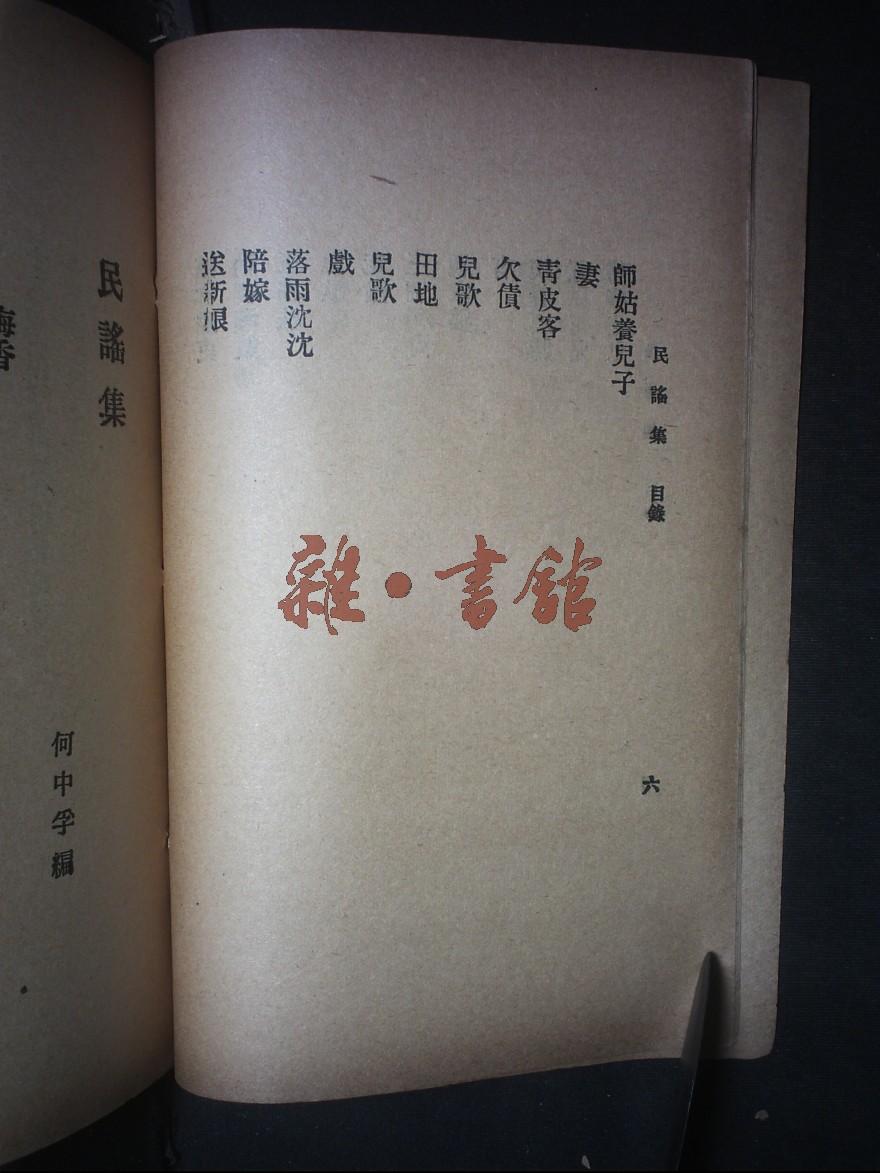 民謠集 目錄
六
師姑養兒子
妻
靑皮客
欠債
兒歌
田地
兒歌
戲
落雨沈沈
陪嫁
送新娘
雜·書館
民謠集
何中孚編
梅香